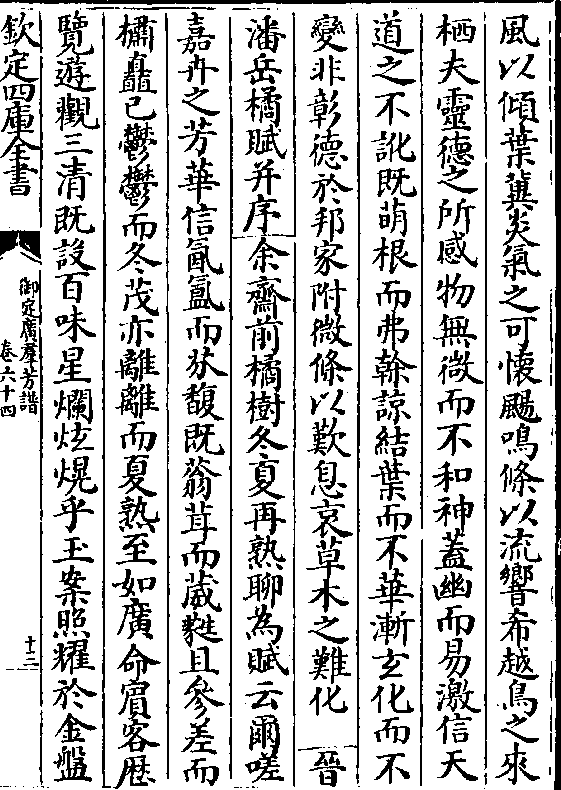 風以傾葉冀炎氣之可懷颺鳴條以流響希越鳥之來
栖夫靈德之所感物無微而不和神蓋幽而易激信天
道之不訛既萌根而弗幹諒結葉而不華漸玄化而不
變非彰德於邦家附微條以歎息哀草木之難化 晉
潘岳橘賦并序 余齋前橘樹冬夏再熟聊為賦云爾嗟
嘉卉之芳華信氤氲而芬馥既蓊茸而葳蕤且參差而
橚矗已鬱鬱而冬茂亦離離而夏熟至如廣命賓客歴
覽遊觀三清既設百味星爛炫熀乎玉案照耀於金盤
欽定四庫全書
御定廣羣芳譜
卷六十四
十二